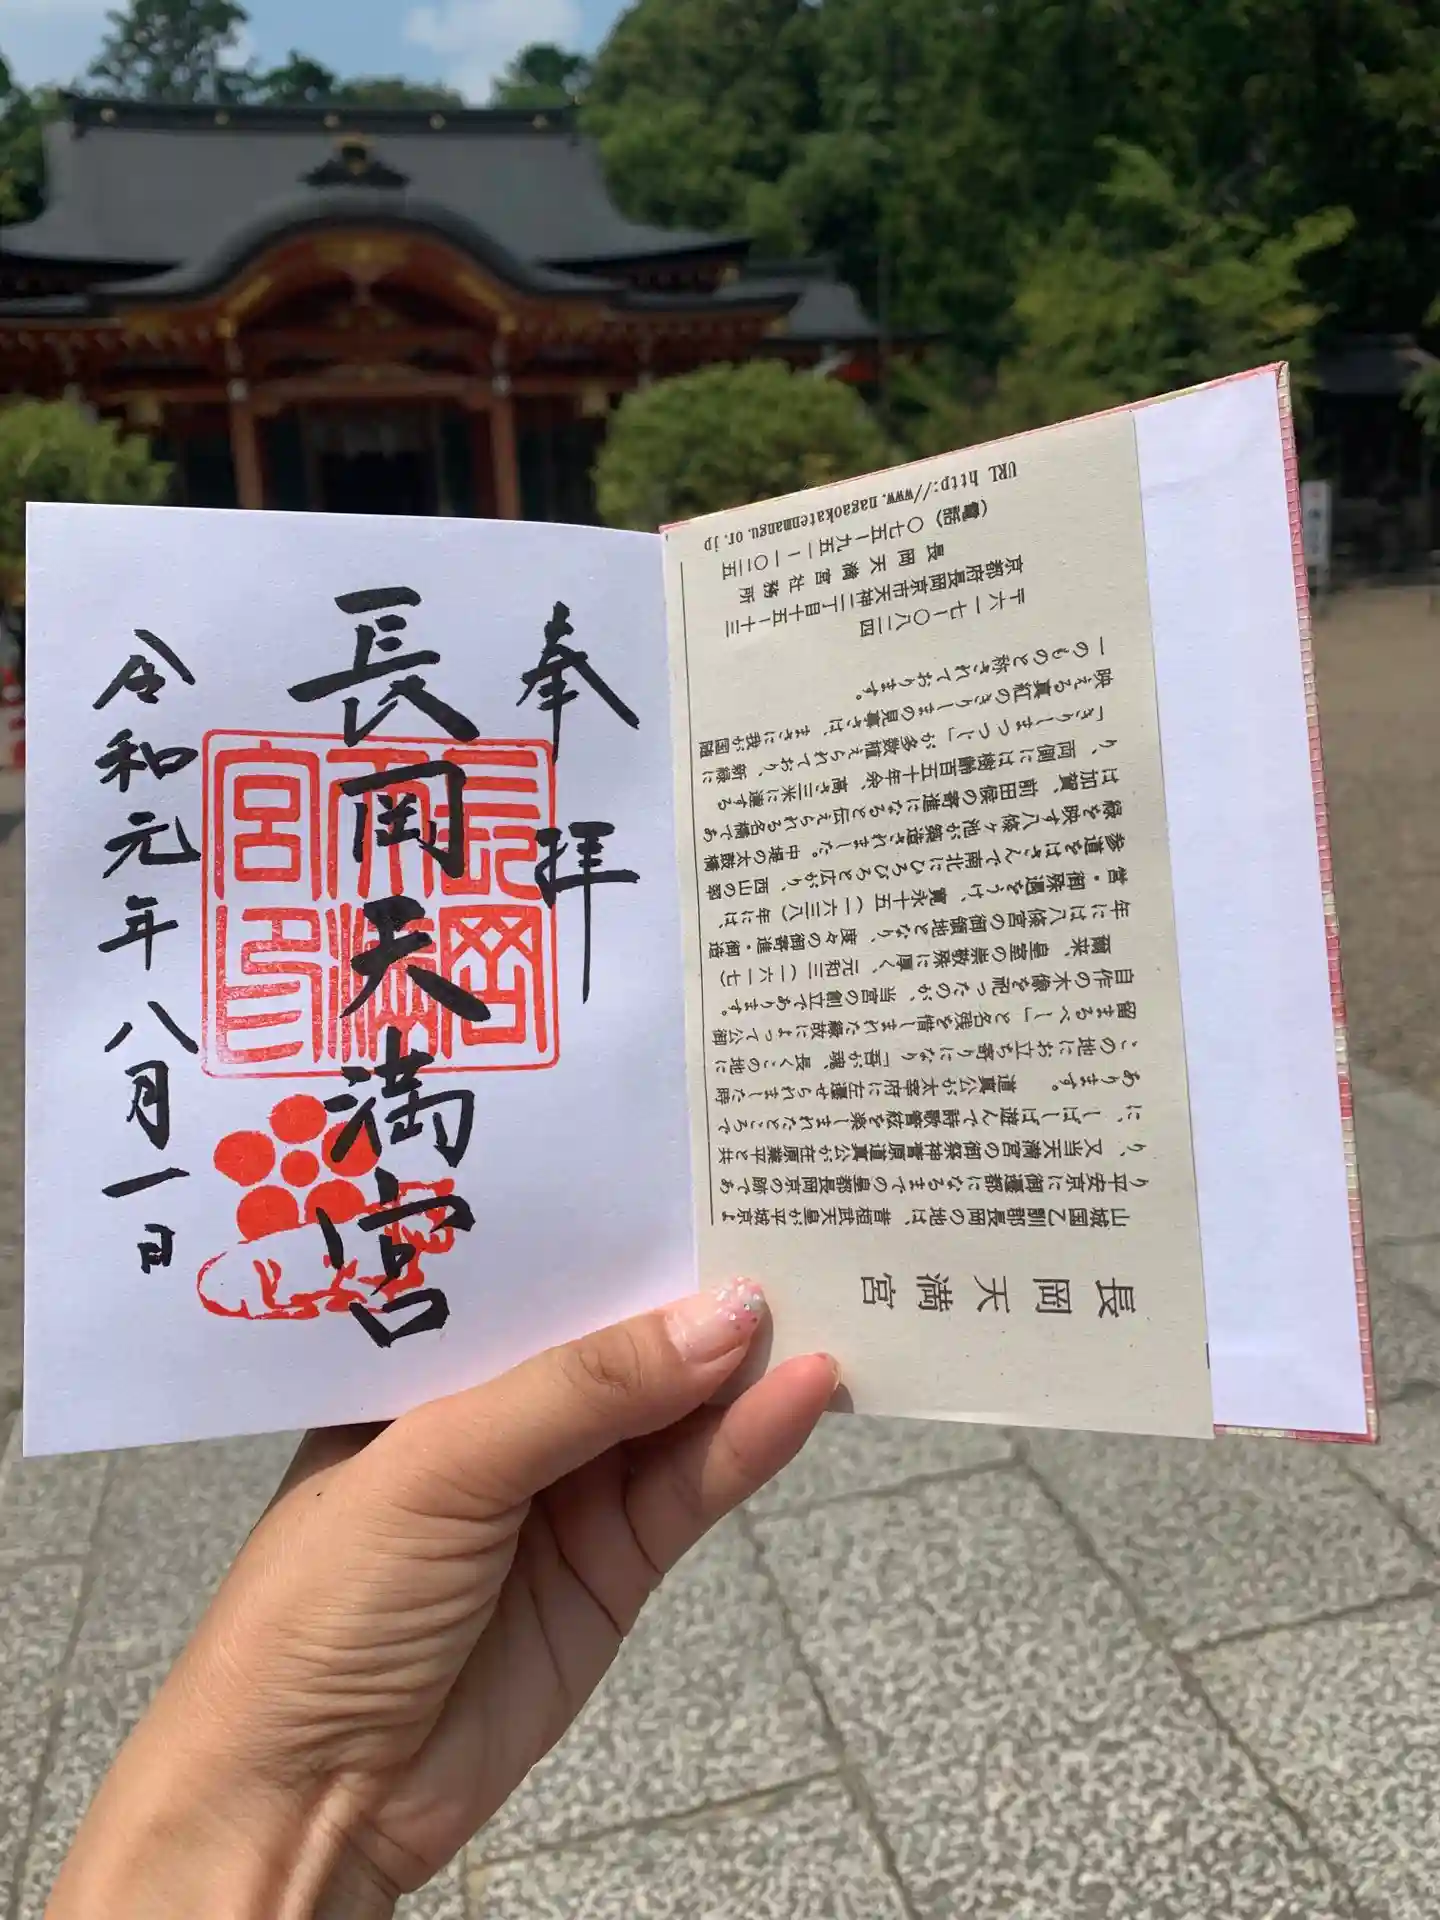 奉拝
長岡天満宮
令和元年八月一日
長岡天満宮印
長岡天満宮
山城国乙訓郡長岡の地は、昔桓武天皇が平城京よ
り平安京に御遷都になるまでの皇都長岡京の跡であ
り、又当天満宮の御祭神菅原道真公が在原業平と共
に、しばしば遊んで詩歌管絃を楽しまれたところで
あります。　道真公が太宰府に左遷せられました時
この地にお立ち寄りになり「吾が魂、長くこの地に
留まるべし」と名残を惜しまれた縁故によって公御
自作の木像を祀ったのが、当宮の創立であります。
爾来、皇室の崇敬殊に厚く、元和三（一六一七）
年には八條宮の御領地となり、度々の御寄進・御造
営・御殊遇をうけ、寛永十五（一六三八）年には、
参道をはさんで南北にひろびろと広がり、西山の翠
緑を映す八條ヶ池が築造されました。中堤の太鼓橋
は加賀、前田侯の寄進になると伝えられる名橋であ
り、両側には樹齢百五十年余、高さ三米に達する
「きりしまつつじ」が多数植えられており、新緑に
映える真紅のきりしまの見事さは、まさに我が国随
一のものと称されております。
〒六一七－〇八二四
京都府長岡京市天神二丁目十五－十三
長岡天満宮社務所
（電話）〇七五－九五一－一〇二五
URL http://www.nagaokatenmangu.or.jp